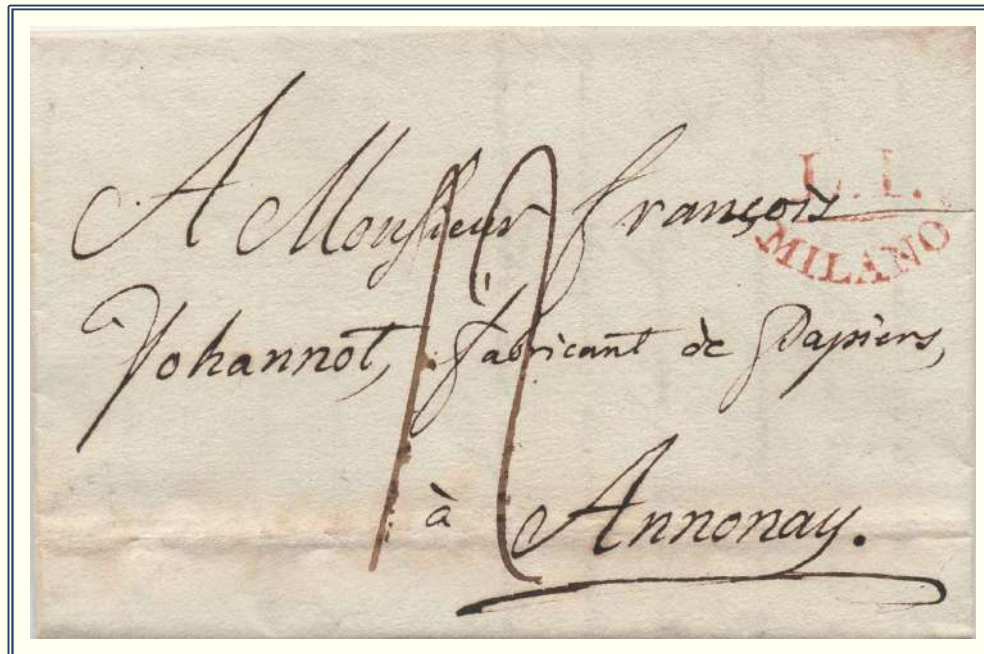 A Monsieur françois
Johannot, fabricant de Papiers,
à Annonay.
L. I.
MILANO